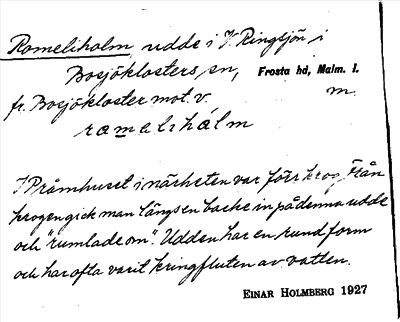 Romeliholm, udde i V. Ringsjön i
Bosjöklosters sn, Frosta hd, Malm. l.
fr. Bosjökloster mot v. m.
ramelihálm
I Pråmhuset i närheten var förr krog. Från
krogen gick man längs en backe in på denna udde
och "rumlade om". Udden har en rund form
och har ofta varit kringfluten av vatten.
EINAR HOLMBERG 1927